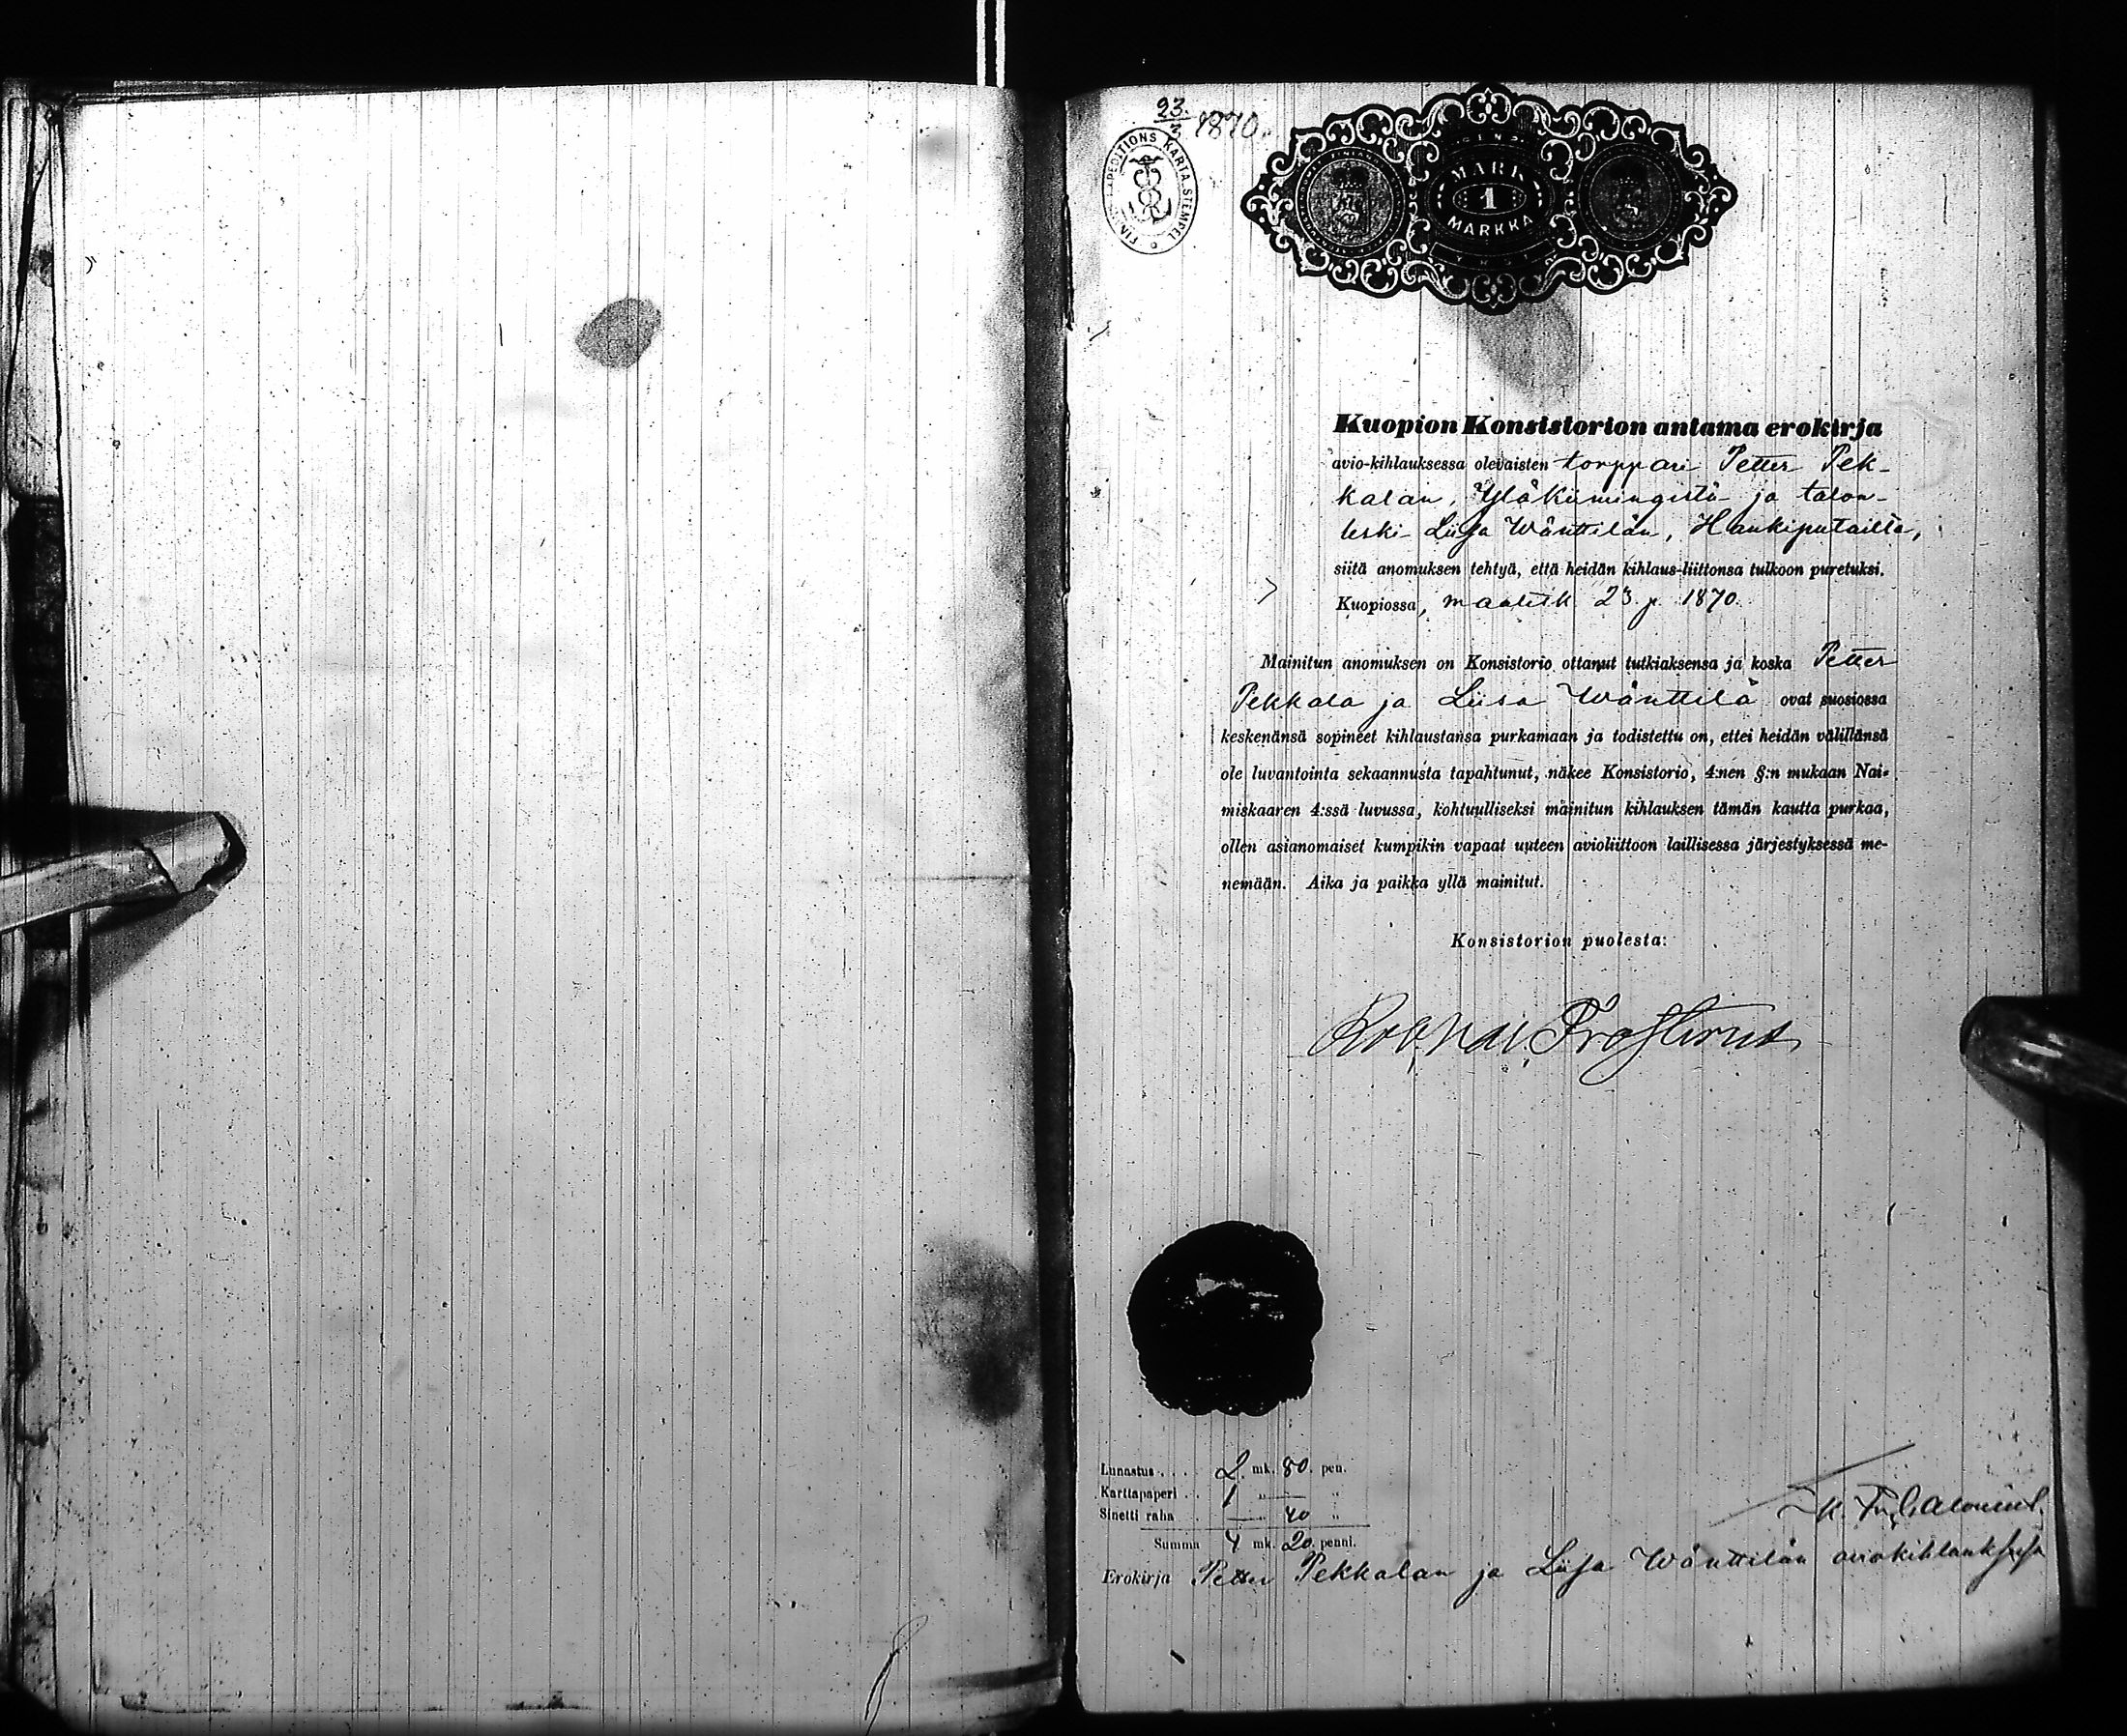 23/3 1870.
EXPEDITIONS KARTA. STEMPEL
MARK
1
MARKKA
Kuopion Konsistorion antama erokirja
avio-kihlauksessa olevaisten torppari Petter Pek-
kalan, Yläkiimingistä ja talon-
leski Liisa Wänttilän, Haukiputailta,
siitä anomuksen tehtyä, että heidän kihlaus-liittonsa tulkoon puretuksi.
Kuopiossa, maalisk 23 p. 1870.
Mainitun anomuksen on Konsistorio ottanut tutkiaksensa ja koska Petter
Pekkala ja Liisa Wänttilä ovat suosiossa
keskenänsä sopineet kihlaustansa purkamaan ja todistettu on, ettei heidän välillänsä
ole luvantointa sekaannusta tapahtunut, näkee Konsistorio, 4:nen §:n mukaan Nai-
miskaaren 4:ssä luvussa, kohtuulliseksi mainitun kihlauksen tämän kautta purkaa,
ollen asianomaiset kumpikin vapaat uuteen avioliittoon laillisessa järjestyksessä me-
nemään. Aika ja paikka yllä mainitut.
Konsistorion puolesta:
Frosterus
Lunastus . . . . 2 mk. 80. pen.
Karttapaperi . . 1 „ — „
Sinetti raha — „ 40 „
Summa 4 mk. 20. penni.
Erokirja Petter Pekkalan ja Liisa Wänttilän aviokihlauksesta